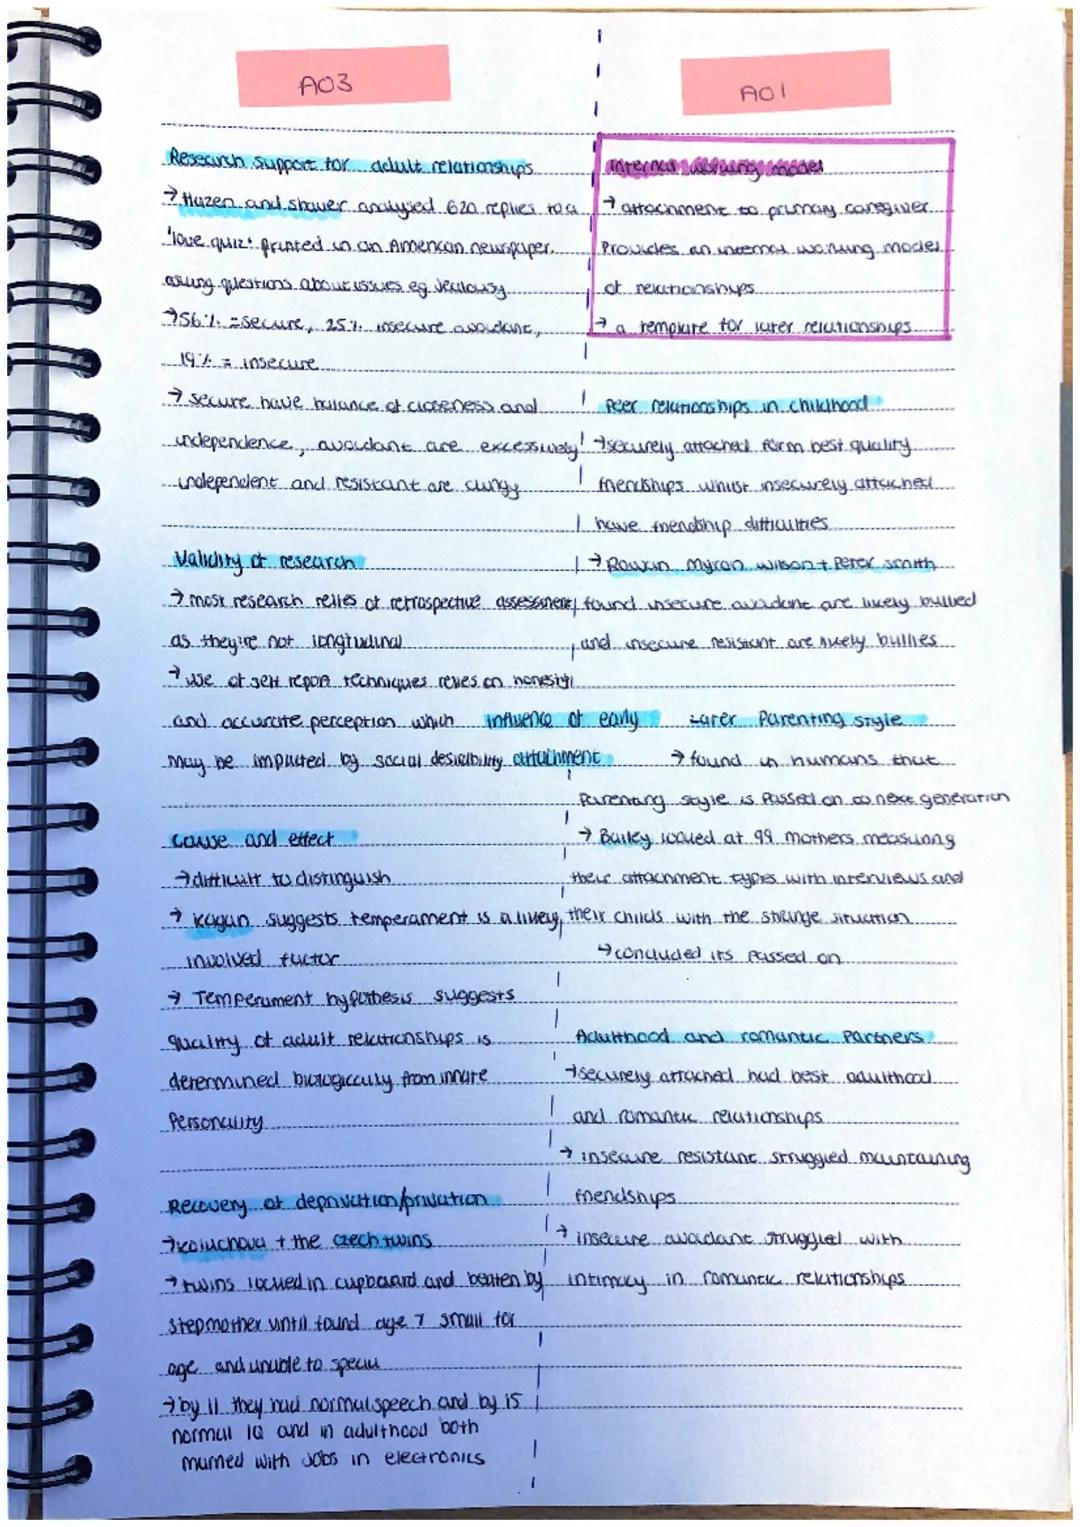 AO3
Research support for adult relationships
→ Hazen and shaver analysed 620 replies to a
'love quiz' printed in an American newspaper
asking questions about issues eg jealousy
→ 56% = secure, 25% insecure avoidant,
19% = insecure
→ secure have balance of closeness and
independence, avoidant are excessively
independent and resistant are clingy
Validity of research
→ most research relies of retrospective assessment
as they're not longitudinal
→ use of self report techniques relies on honesty
and accurate perception which
may be impacted by social desirability
cause and effect
→ difficult to distinguish
→ kagan suggests temperament is a likely
involved factor
→ Temperament hypothesis suggests
quality of adult relationships is
determined biologically from innate
Personality
Recovery of deprivation/privation
→ koluchova + the czech twins
→ twins locked in cupboard and beaten by
stepmother until found age 7 small for
age and unable to speak
→ by 11 they had normal speech and by 15
normal IQ and in adulthood both
married with jobs in electronics
influence of early
attachment
AO1
internal working model
→ attachment to primary caregiver
Provides an internal working model
of relationships
→ a template for later relationships
Peer relationships in childhood
→ securely attached form best quality
friendships whilst insecurely attached
have friendship difficulties
→ Rowan Myron wilson + Peter smith
found insecure avoidant are likely bullied
and insecure resistant are likely bullies
Later Parenting style
→ found in humans that
Parenting style is Passed on to next generation
→ Bailey looked at 99 mothers measuring
their attachment types with interviews and
their childs with the strange situation
→ concluded its passed on
Adulthood and romantic Partners
→ securely attached had best adulthood
and romantic relationships
→ insecure resistant struggled maintaining
friendships
→ insecure avoidant struggled with
intimacy in romantic relationships